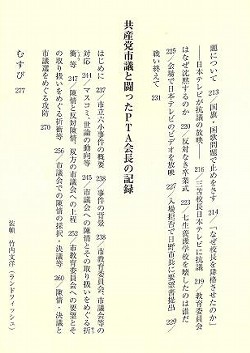 題について 213／国旗・国歌問題で止めをさす 214／「なぜ校長を降格させたのか」
──日本テレビが抗議の放映── 216／三苫校長日本テレビに抗議 219／教育委員会
はなぜ沈黙するのか 220／反対なき卒業式 223／七生養護学校を壊したのは誰だ
225／会場で日本テレビのビデオを放映 227／入場拒否で日野市長に要望書提出 229／
戦い終えて 231
共産党市議と闘ったPTA会長の記録
はじめに 237／市立六小事件の概要 238／事件の背景 238／市教育委員会、市議会等の
対応 241／マスコミ、世論の動向等 245／市議会への陳情とその取り扱いをめぐる折
衝等 247／陳情と反対陳情、双方の市議会への上程 252／市教育委員会への陳情とそ
の取り扱いをめぐる折衝等 256／市議会での陳情の採択・決議等 260／陳情・決議と
市議選をめぐる攻防 270
むすび 277
装幀 竹内文洋（ランドフィッシュ）